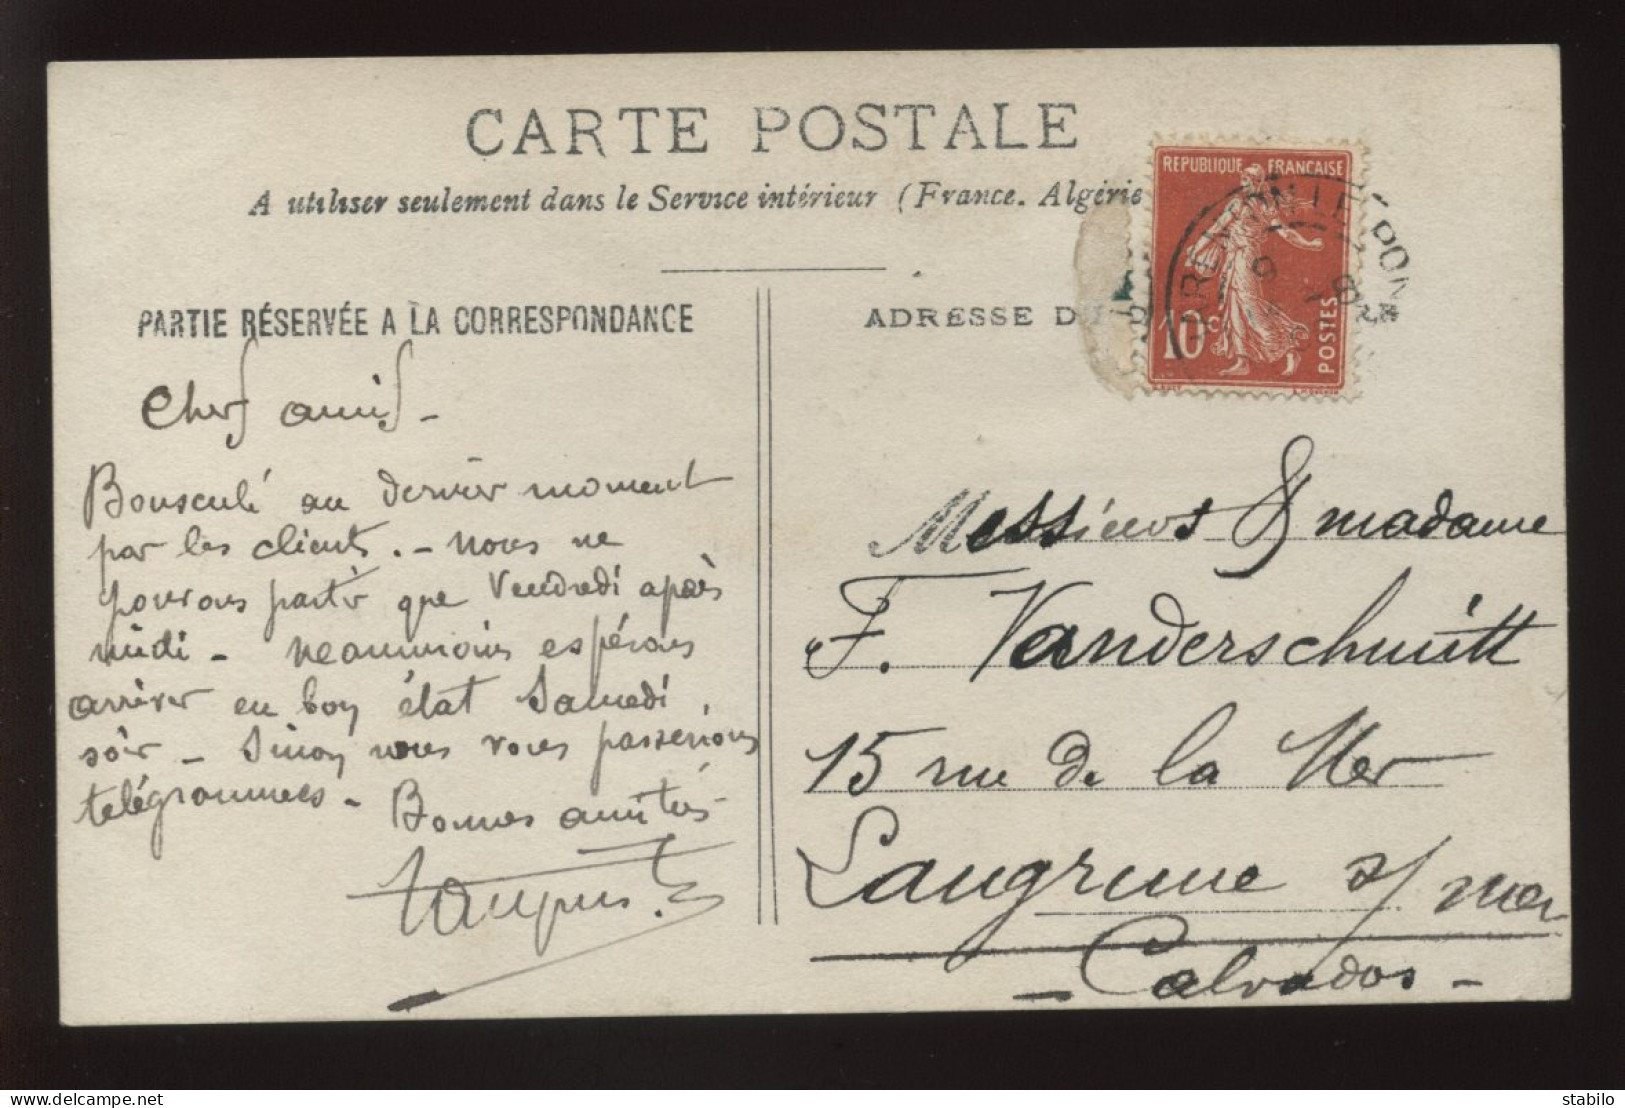 CARTE POSTALE
A utiliser seulement dans le Service intérieur (France. Algérie
PARTIE RÉSERVÉE A LA CORRESPONDANCE
ADRESSE DU
REPUBLIQUE FRANÇAISE
10c
POSTES
Chers amis -
Bousculé au dernier moment
par les clients. - nous ne
pourons partir que Vendredi après
midi - neanmoins espérons
arriver en bon état Samedi
soir - Sinon nous vous passerions
telégrammes -
Bonnes amitiés
Messieurs & madame
F. Vanderschmitt
15 rue de la Mer
Langrune s/ mer
Calvados -
delcampe.net
stabilo